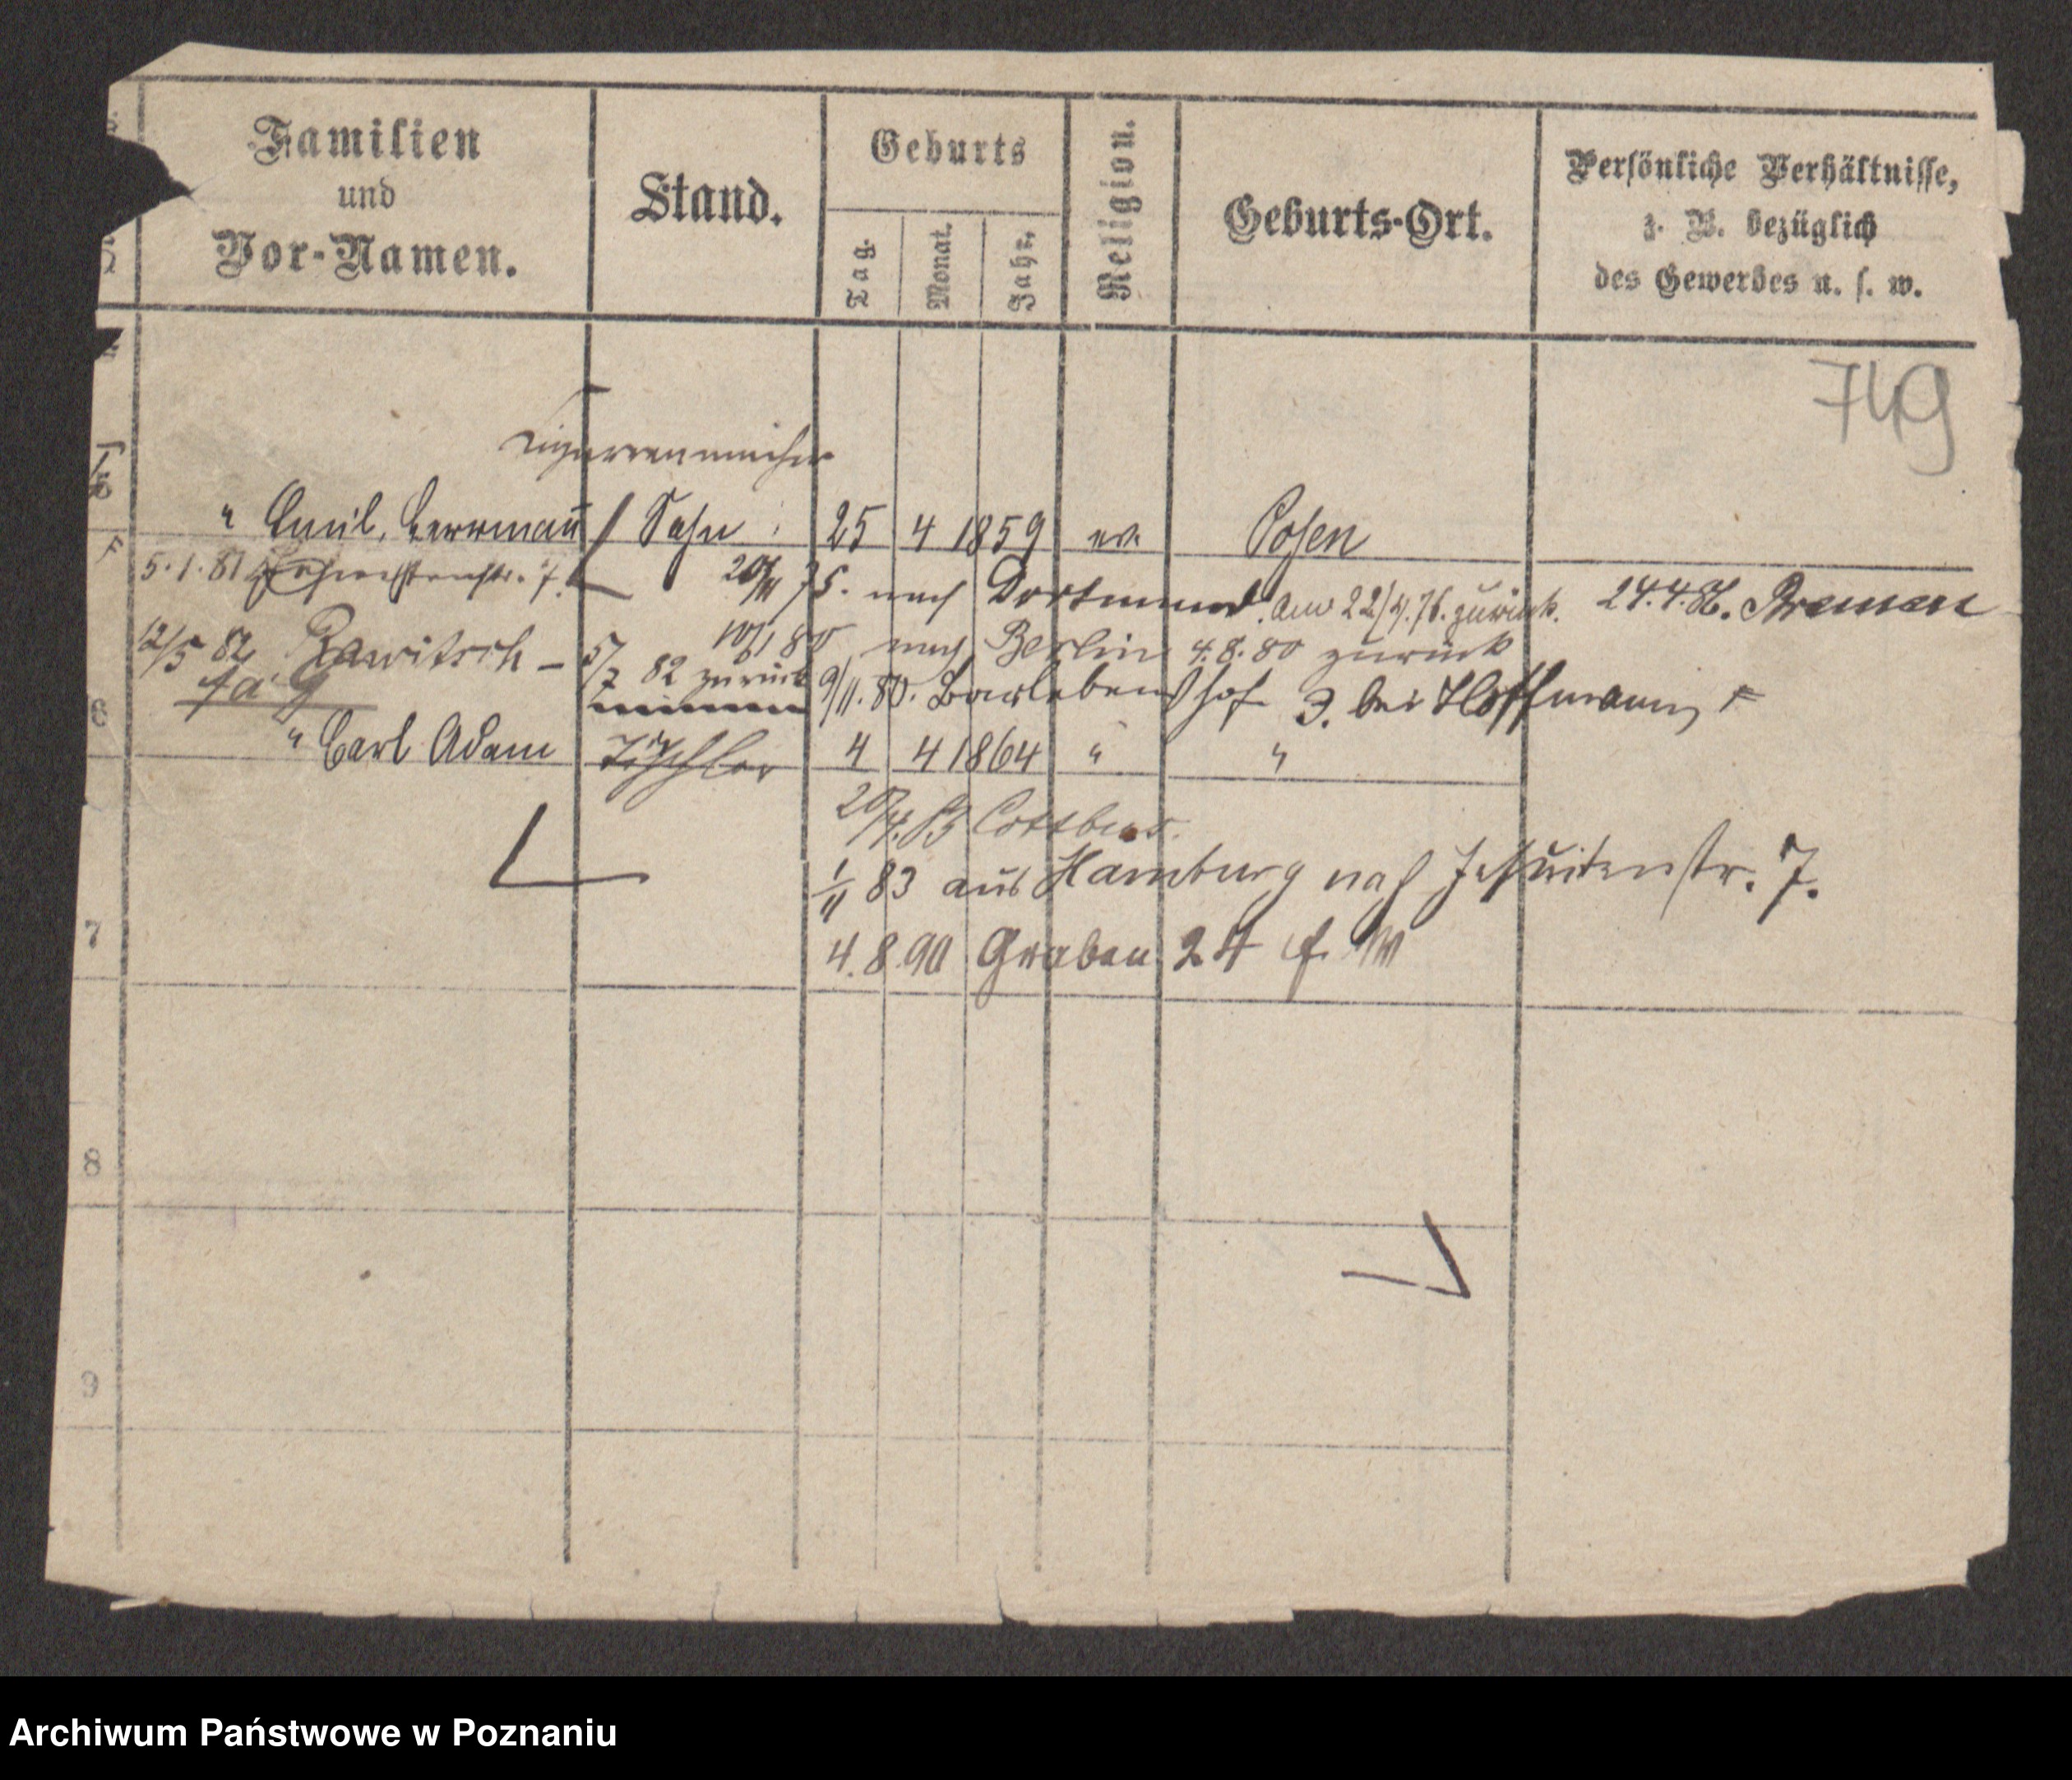 Familien und Vor-Namen.
Stand.
Geburts
Tag.
Monat.
Jahr.
Religion.
Geburts-Ort.
Persönliche Verhältnisse,
z. B. bezüglich
des Gewerbes u. s. w.
749
Cigarrenmacher
" Emil, Herrmañ Sohn 25 4 1859 ev. Posen
5.1.81
20/11 75. nach Dortmund. am 22/4.76. zurück. 24.4.86. Bremen
10/1 80 nach Berlin 4.8.80 zurück
12/5 82 Rawitsch – 5/7 82 zurück 9/11.80. Barlebenshof 3. bei Hoffmann
6
" Carl Adam Tischler 4 4 1864 " "
20/4.83 Cottbus.
1/11 83 aus Hamburg nach Jesuitenstr. 7.
7
4.8.90 Graben 24
8
9
Archiwum Państwowe w Poznaniu